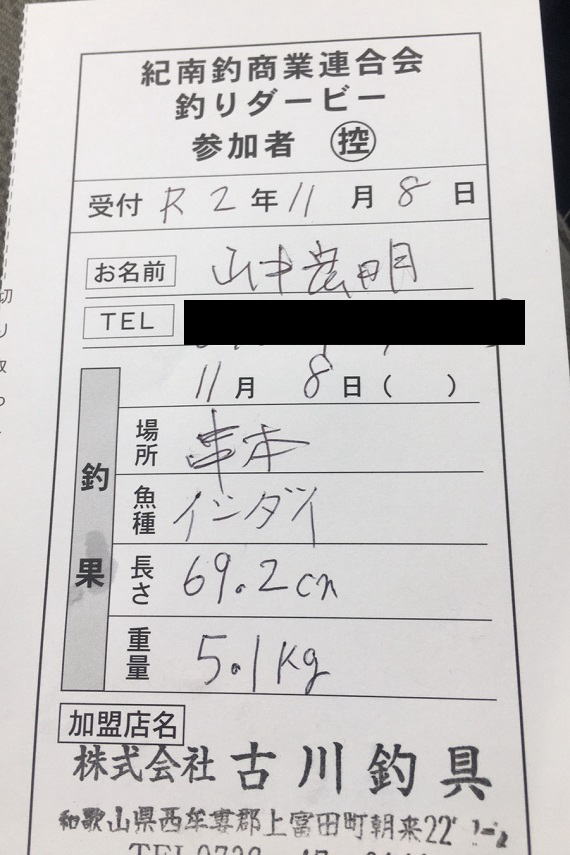 紀南釣商業連合会
釣りダービー
参加者 控
受付 R2年11月8日
お名前 山本宏明
TEL
釣果
11月8日( )
場所 串本
魚種 イシダイ
長さ 69.2cm
重量 5.1kg
加盟店名
株式会社 古川釣具
和歌山県西牟婁郡上富田町朝来22